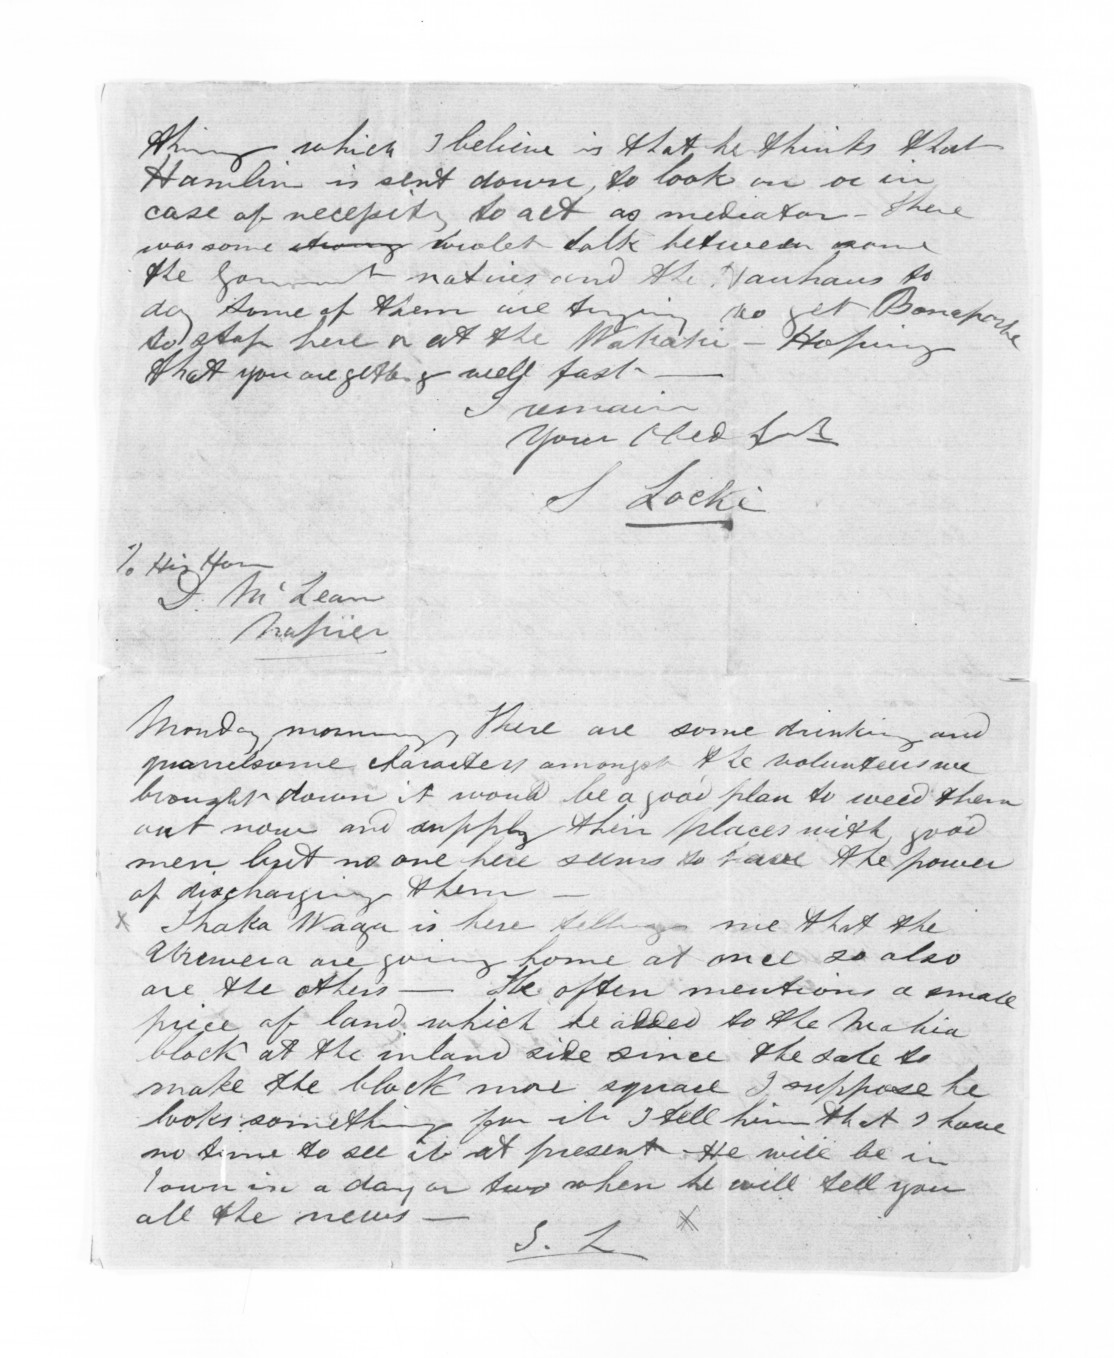 thing which I believe is that he thinks that
Hamlin is sent down, to look on or in
case of necessity to act as mediator - there
was some strong violet talk between some
the natives and the Hauhaus to
day some of them are trying to get Bonaparte
to stop here or at the - Hoping
that you are getting well fast -
I remain
Your Obed Svt
S Locke
To His Honr
D. McLean
Napier
Monday morning, There are some drinking and
quarrelsome characters amongst the volunteers we
brought down it would be a good plan to weed them
out now and supply their places with good
men but no one here seems to have the power
of discharging them -
x Ihaka Waga is here telling me that the
Urewera are going home at once so also
are the others - He often mentions a small
piece of land which he added to the Mahia
block at the inland side since the sale to
make the block more square I suppose he
looks something for it I tell him that I have
no time to see it at present He will be in
Town in a day or two when he will tell you
all the news - x
S. L